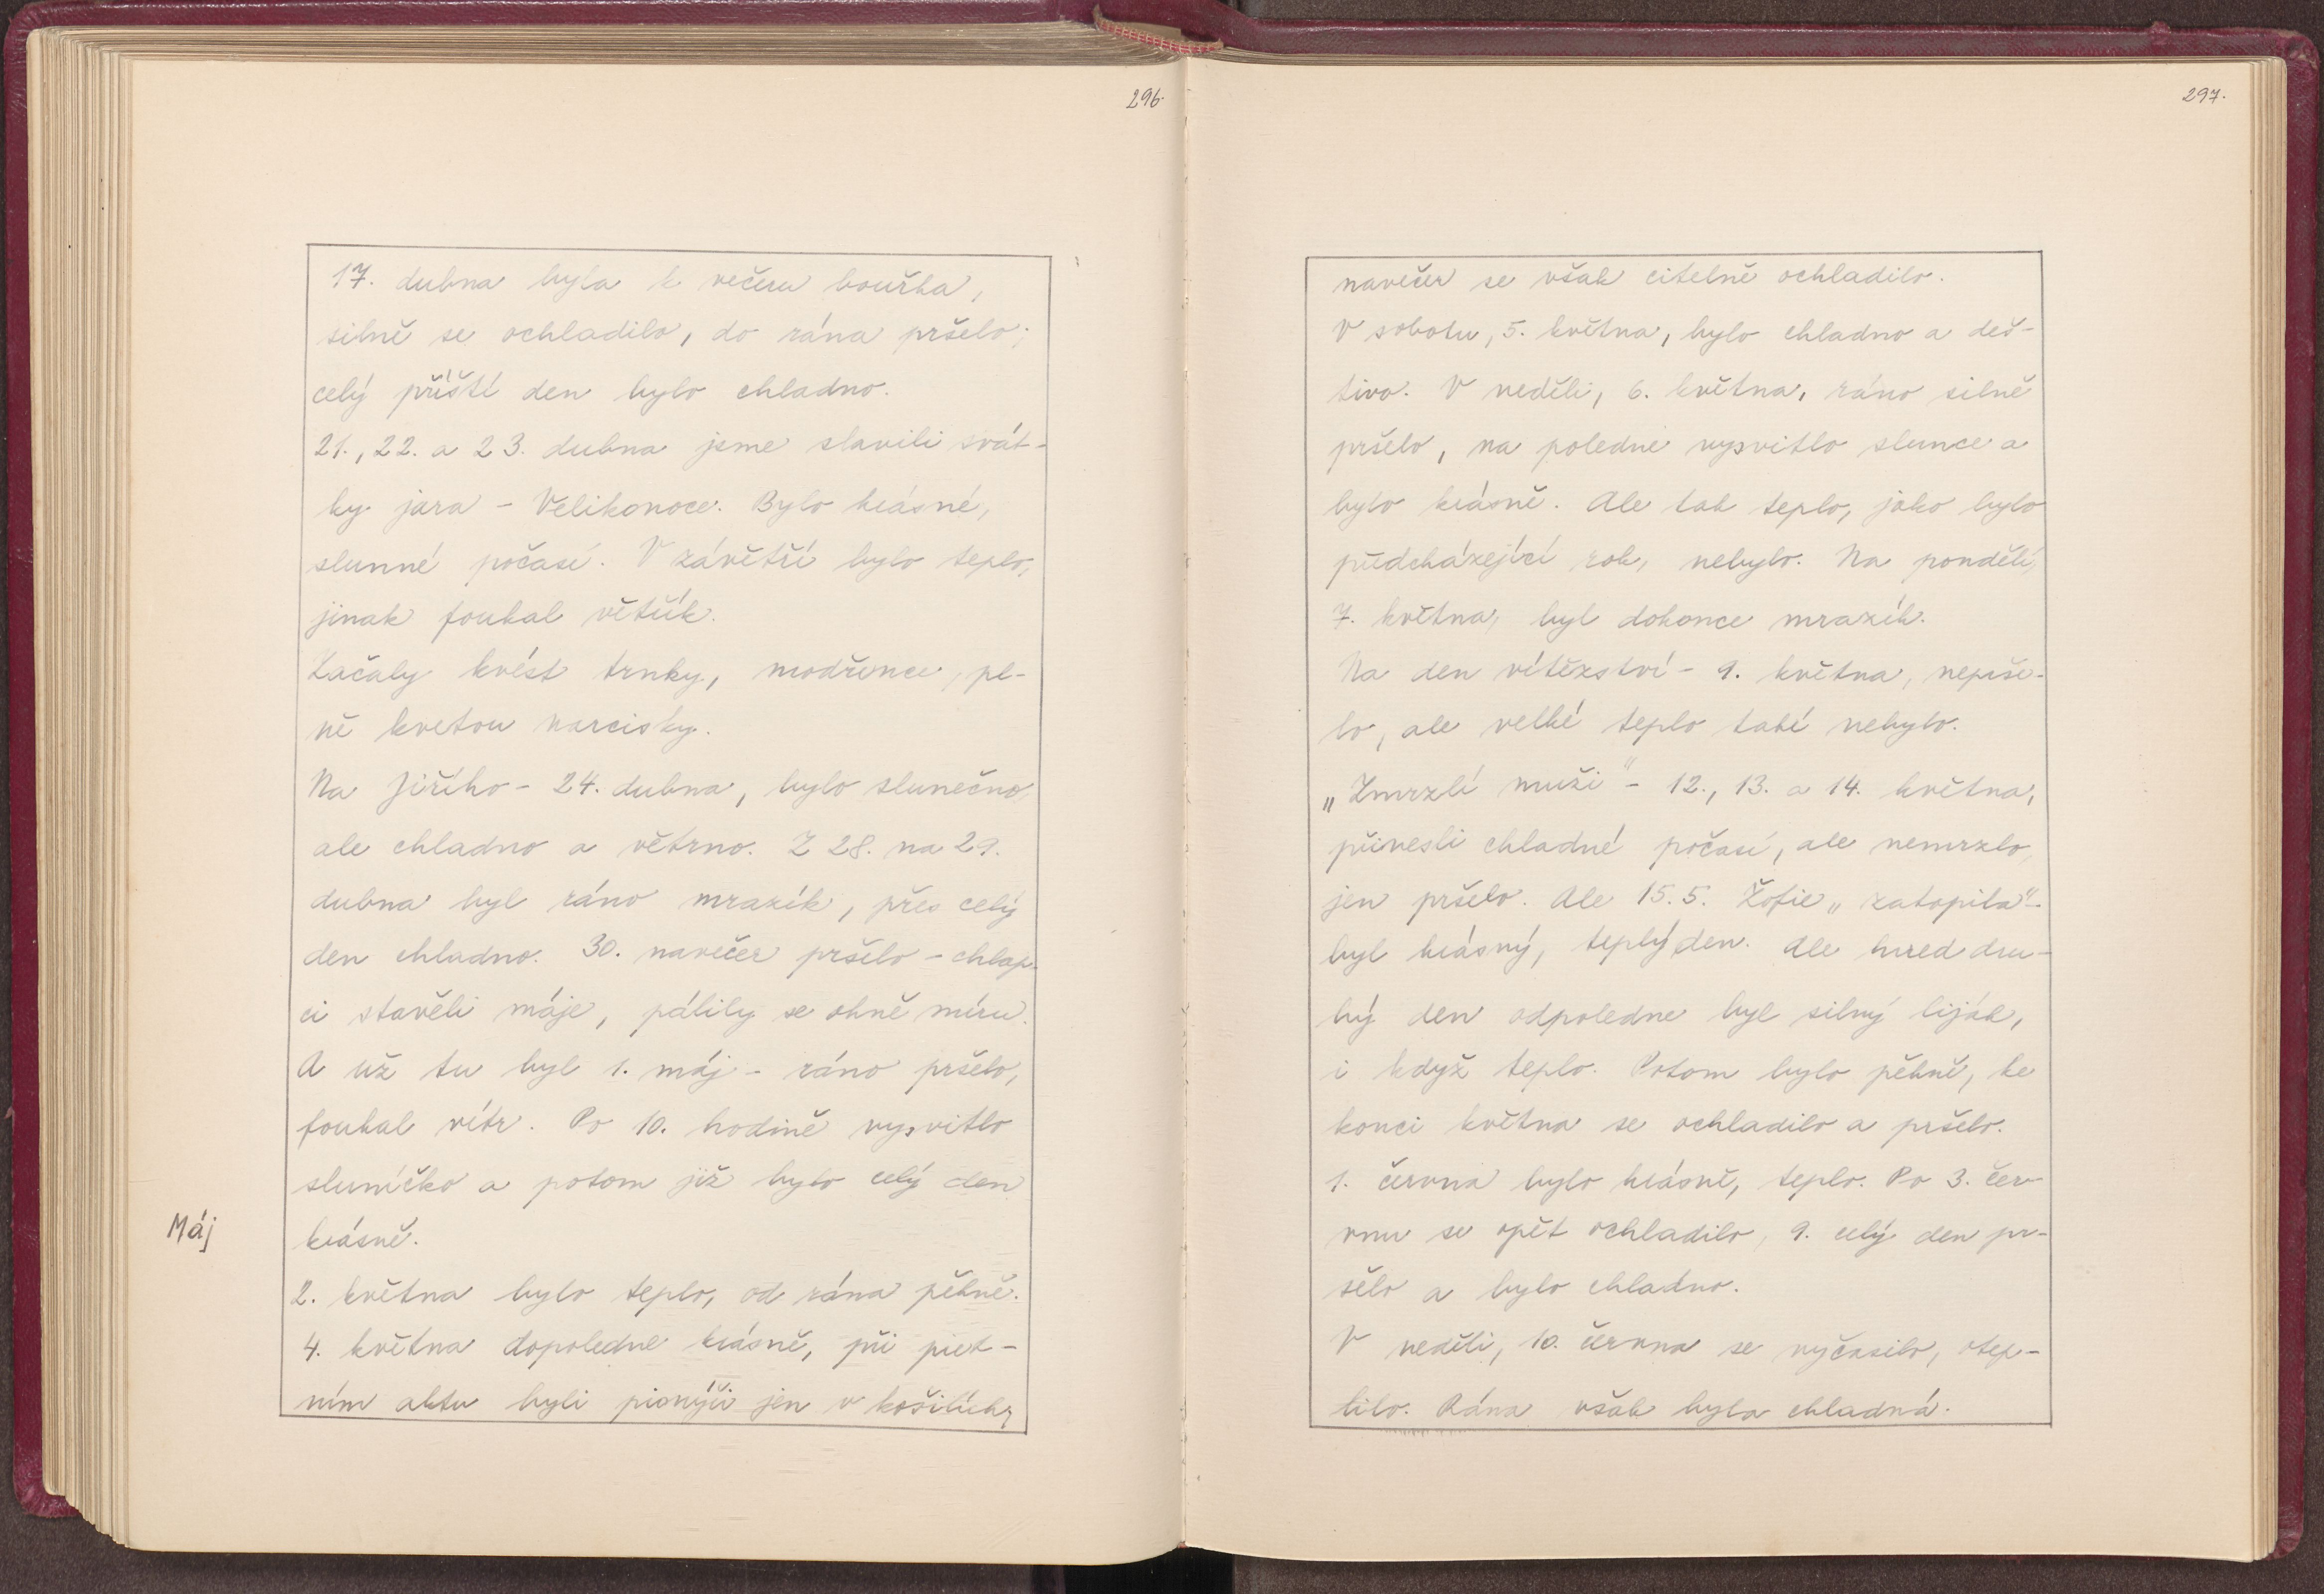 296.
17. dubna byla k večeru bouřka,
silně se ochladilo, do rána pršelo;
celý příští den bylo chladno.
21., 22. a 23. dubna jsme slavili svát-
ky jara - Velikonoce. Bylo krásné,
slunné počasí. V závětří bylo teplo,
jinak foukal větřík.
Začaly kvést trnky, modřence, pl-
ně kvetou narcisky.
Na Jiřího - 24. dubna, bylo slunečno,
ale chladno a větrno. Z 28. na 29.
dubna byl ráno mrazík, přes celý
den chladno. 30. navečer pršelo - chlap-
ci stavěli máje, pálily se ohně míru.
A už tu byl 1. máj - ráno pršelo,
foukal vítr. Po 10. hodině vysvitlo
sluníčko a potom již bylo celý den
Máj
krásně.
2. května bylo teplo, od rána pěkně.
4. května dopoledne krásně, při piet-
ním aktu byli pionýři jen v košilích,
297.
navečer se však citelně ochladilo.
V sobotu, 5. května, bylo chladno a deš-
tivo. V neděli, 6. května, ráno silně
pršelo, na poledne vysvitlo slunce a
bylo krásně. Ale tak teplo, jako bylo
předcházející rok, nebylo. Na pondělí,
7. května, byl dokonce mrazík.
Na den vítězství - 9. května, neprše-
lo, ale velké teplo také nebylo.
„Zmrzlí muži" - 12., 13. a 14. května,
přinesli chladné počasí, ale nemrzlo,
jen pršelo. Ale 15.5. Žofie „zatopila" -
byl krásný, teplý den. Ale hned dru-
hý den odpoledne byl silný liják,
i když teplo. Potom bylo pěkně, ke
konci května se ochladilo a pršelo.
1. června bylo krásně, teplo. Po 3. čer-
vnu se opět ochladilo, 9. celý den pr-
šelo a bylo chladno.
V neděli, 10. června se vyčasilo, otep-
lilo. Rána však byla chladná.